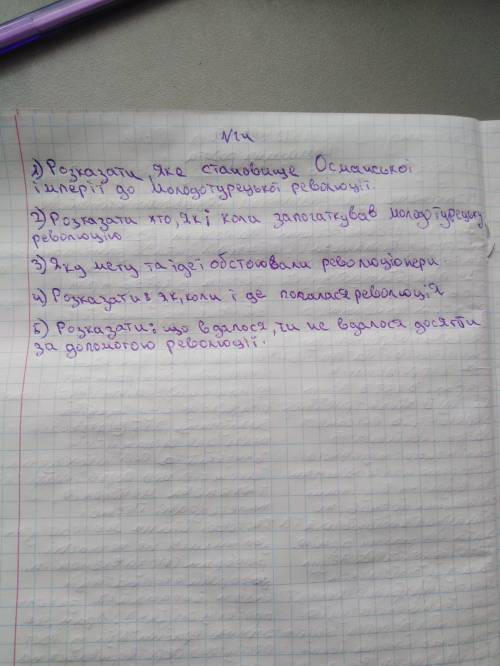 N 24
1) Розказати, яке становище Османської
імперії до Молодотурецької революції.
2) Розказати хто, як і коли започаткував молодотурецьку
революцію
3) Яку мету та ідеї обстоювали революціонери.
4) Розказати: як, коли і де почалася революція
5) Розказати: що вдалося, чи не вдалося досягти
за допомогою революції.